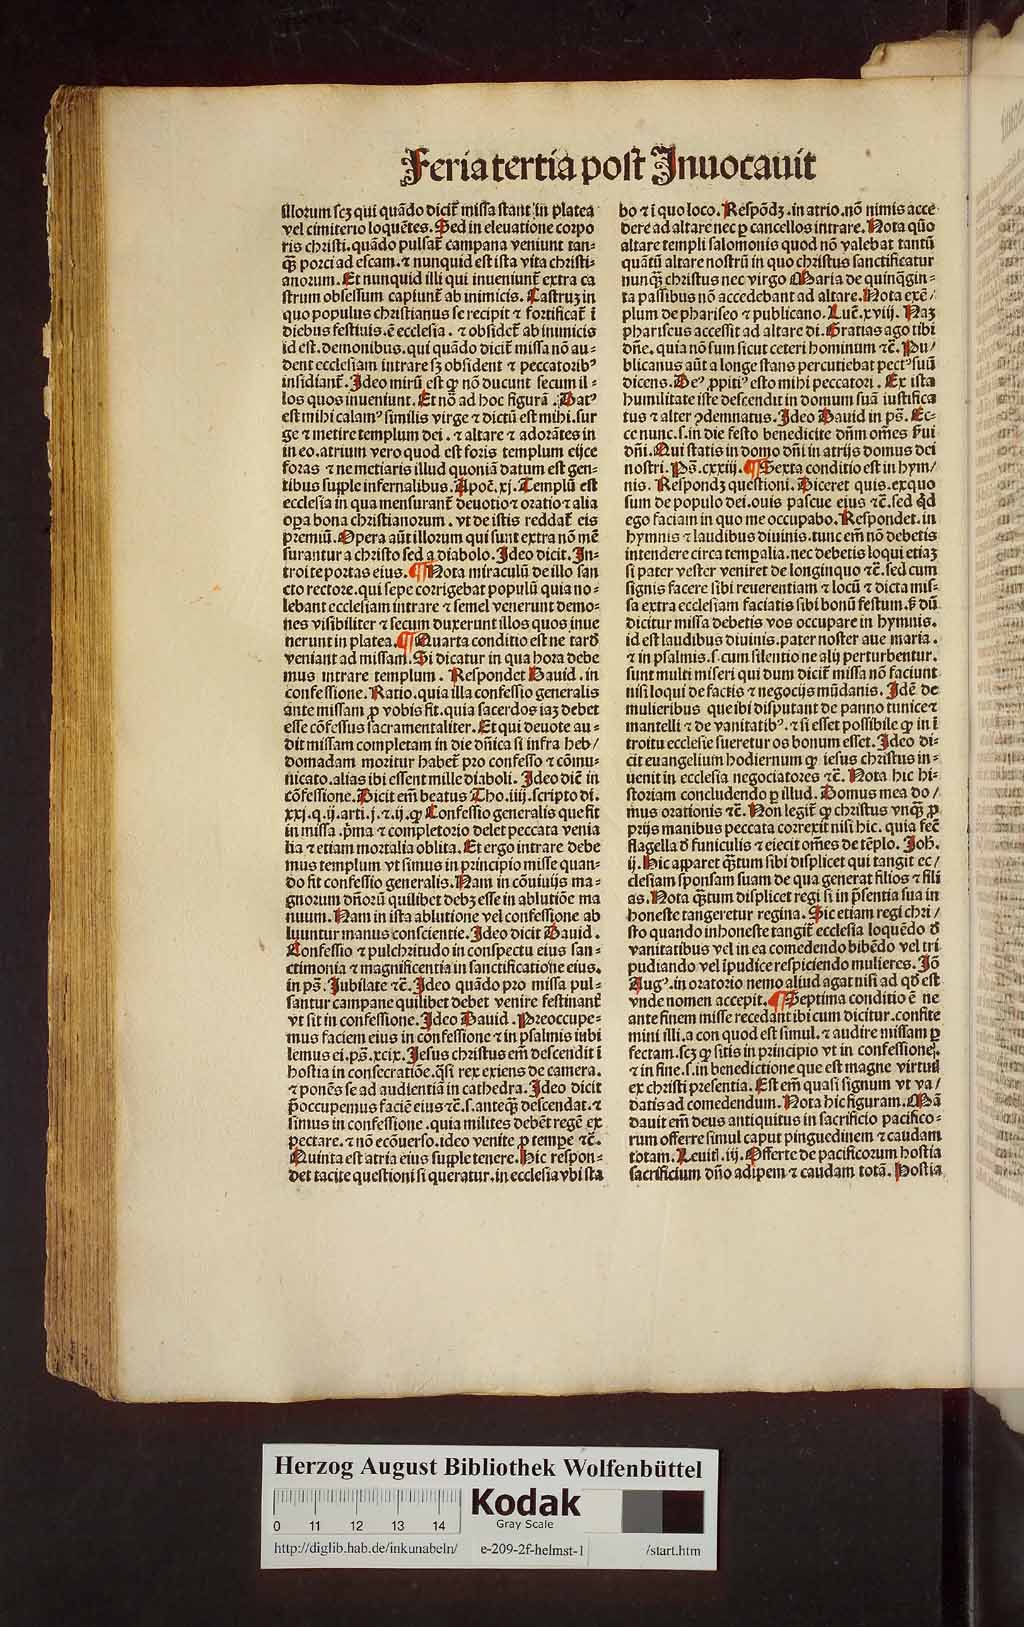 Feria tertia post Inuocauit
illorum scꝫ qui quãdo dicit̃ missa stant in platea
vel cimiterio loquẽtes. Sed in eleuatione corpo
ris christi. quãdo pulsat̃ campana veniunt tan-
q̃ꝫ porci ad escam. ⁊ nunquid est ista vita christi-
anorum. Et nunquid illi qui inueniunt̃ extra ca
strum obsessum capiunt̃ ab inimicis. Castruꝫ in
quo populus christianus se recipit ⁊ fortificat̃ ĩ
diebus festiuis. ẽ ecclesia. ⁊ obsidet̃ ab inimicis
id est. demonibus. qui quãdo dicit̃ missa nõ au-
dent ecclesiam intrare sꝫ obsident ⁊ peccatoribꝰ
insidiant̃. Ideo mirũ est ꝙ nõ ducunt secum il-
los quos inueniunt. Et nõ ad hoc figurã. Datꝰ
est mihi calamꝰ similis virge ⁊ dictũ est mihi. sur
ge ⁊ metire templum dei. ⁊ altare ⁊ adorãtes in
in eo. atrium vero quod est foris templum eijce
foras ⁊ ne metiaris illud quoniã datum est gen-
tibus supple infernalibus. Apoc̃. xj. Templũ est
ecclesia in qua mensurant̃ deuotio ⁊ oratio ⁊ alia
oꝑa bona christianorum. vt de istis reddat̃ eis
premiũ. Opera aũt illorum qui sunt extra nõ mẽ
surantur a christo sed a diabolo. Ideo dicit. In-
troite portas eius. ¶ Nota miraculũ de illo san
cto rectore. qui sepe corrigebat populũ quia no-
lebant ecclesiam intrare ⁊ semel venerunt demo-
nes visibiliter ⁊ secum duxerunt illos quos inue
nerunt in platea. ¶ Quarta conditio est ne tard
veniant ad missam. Si dicatur in qua hora debe
mus intrare templum. Respondet Dauid. in
confessione. Ratio. quia illa confessio generalis
ante missam ꝓ vobis fit. quia sacerdos iaꝫ debet
esse cõfessus sacramentaliter. Et qui deuote au-
dit missam completam in die dñica si infra heb/
domadam moritur habet̃ pro confesso ⁊ cõmu-
nicato. alias ibi essent mille diaboli. Ideo dic̃ in
cõfessione. Dicit em̃ beatus Tho. iiij. scripto di.
xxj. q. ij. arti. j. ⁊ .ij. ꝙ Confessio generalis que fit
in missa. p̃ma ⁊ completorio delet peccata venia
lia ⁊ etiam mortalia oblita. Et ergo intrare debe
mus templum vt simus in principio misse quan-
do fit confessio generalis. Nam in cõuiuijs ma-
gnorum dñorũ quilibet debꝫ esse in ablutiõe ma
nuum. Nam in ista ablutione vel confessione ab
luuntur manus conscientie. Ideo dicit Dauid.
Confessio ⁊ pulchritudo in conspectu eius san-
ctimonia ⁊ magnificentia in sanctificatione eius.
in ps̃. Iubilate ⁊c̃. Ideo quãdo pro missa pul-
santur campane quilibet debet venire festinant̃
vt sit in confessione. Ideo Dauid. Preoccupe-
mus faciem eius in confessione ⁊ in psalmis iubi
lemus ei. ps̃. xcix. Iesus christus em̃ descendit ĩ
hostia in consecratiõe. q̃si rex exiens de camera.
⁊ ponẽs se ad audientiã in cathedra. Ideo dicit
p̃occupemus faciẽ eius ⁊c̃. s. anteq̃ꝫ descendat. ⁊
simus in confessione. quia milites debẽt regẽ ex
pectare. ⁊ nõ ecõuerso. ideo venite ꝓ tempe ⁊c̃.
Quinta est atria eius supple tenere. Hic respon-
det tacite questioni si queratur. in ecclesia vbi sta
bo ⁊ ĩ quo loco. Respõdꝫ. in atrio. nõ nimis acce
dere ad altare nec ꝑ cancellos intrare. Nota qũo
altare templi salomonis quod nõ valebat tantũ
quãtũ altare nostrũ in quo christus sanctificatur
nunq̃ꝫ christus nec virgo Maria de quinq̃gin-
ta passibus nõ accedebant ad altare. Nota exẽ/
plum de phariseo ⁊ publicano. Luc̃. xviij. Naꝫ
phariseus accessit ad altare di. Gratias ago tibi
dñe. quia nõ sum sicut ceteri hominum ⁊c̃. Pu/
blicanus aũt a longe stans percutiebat pectꝰ suũ
dicens. Deꝰ ꝓpitiꝰ esto mihi peccatori. Ex ista
humilitate iste descendit in domum suã iustifica
tus ⁊ alter ꝯdemnatus. Ideo Dauid in ps̃. Ec-
ce nunc. s. in die festo benedicite dñm om̃es s̃ui
dñi. Qui statis in domo dñi in atrijs domus dei
nostri. Ps̃. cxxiij. ¶ Sexta conditio est in hym/
nis. Respondꝫ questioni. Diceret quis. ex quo
sum de populo dei. ouis pascue eius ⁊c̃. sed q̃d
ego faciam in quo me occupabo. Respondet. in
hymnis ⁊ laudibus diuinis. tunc em̃ nõ debetis
intendere circa temꝑalia. nec debetis loqui etiaꝫ
si pater vester veniret de longinquo ⁊c̃. sed cum
signis facere sibi reuerentiam ⁊ locũ ⁊ dicta mis-
sa extra ecclesiam faciatis sibi bonũ festum. s̃ dũ
dicitur missa debetis vos occupare in hymnis.
id est laudibus diuinis. pater noster aue maria.
⁊ in psalmis. s. cum silentio ne alij perturbentur.
sunt multi miseri qui dum dicit̃ missa nõ faciunt
nisi loqui de factis ⁊ negocijs mũdanis. Idẽ de
mulieribus que ibi disputant de panno tunice ⁊
mantelli ⁊ de vanitatibꝰ. ⁊ si esset possibile ꝙ in ĩ
troitu ecclesie sueretur os bonum esset. Ideo di-
cit euangelium hodiernum ꝙ iesus christus in-
uenit in ecclesia negociatores ⁊c̃. Nota hic hi-
storiam concludendo ꝑ illud. Domus mea do/
mus orationis ⁊c̃. Non legit̃ ꝙ christus vnq̃ꝫ ꝓ
prijs manibus peccata correxit nisi hic. quia fec̃
flagella d̃ funiculis ⁊ eiecit om̃es de tẽplo. Joh̃.
ij. Hic apparet q̃tum sibi displicet qui tangit ec/
clesiam sponsam suam de qua generat filios ⁊ fili
as. Nota q̃tum displicet regi si in p̃sentia sua in
honeste tangeretur regina. Sic etiam regi chri/
sto quando inhoneste tangit̃ ecclesia loquẽdo d̃
vanitatibus vel in ea comedendo bibẽdo vel tri
pudiando vel ĩpudice respiciendo mulieres. Iõ
Augꝰ. in oratorio nemo aliud agat nisi ad qd̃ est
vnde nomen accepit. ¶ Septima conditio ẽ ne
ante finem misse recedant ibi cum dicitur. confite
mini illi. a con quod est simul. ⁊ audire missam ꝑ
fectam. scꝫ ꝙ sitis in principio vt in confessione.
⁊ in fine. s. in benedictione que est magne virtutꝭ
ex christi presentia. Est em̃ quasi signum vt va/
datis ad comedendum. Nota hic figuram. Nã
dauit em̃ deus antiquitus in sacrificio pacifico-
rum offerre simul caput pinguedinem ⁊ caudam
totam. Leuit̃. iij. Offerte de pacificorum hostia
sacrificium dño adipem ⁊ caudam totã. Hostia
Herzog August Bibliothek Wolfenbüttel
Kodak
Gray Scale
0 11 12 13 14
http://diglib.hab.de/inkunabeln/ e-209-2f-helmst-1 /start.htm